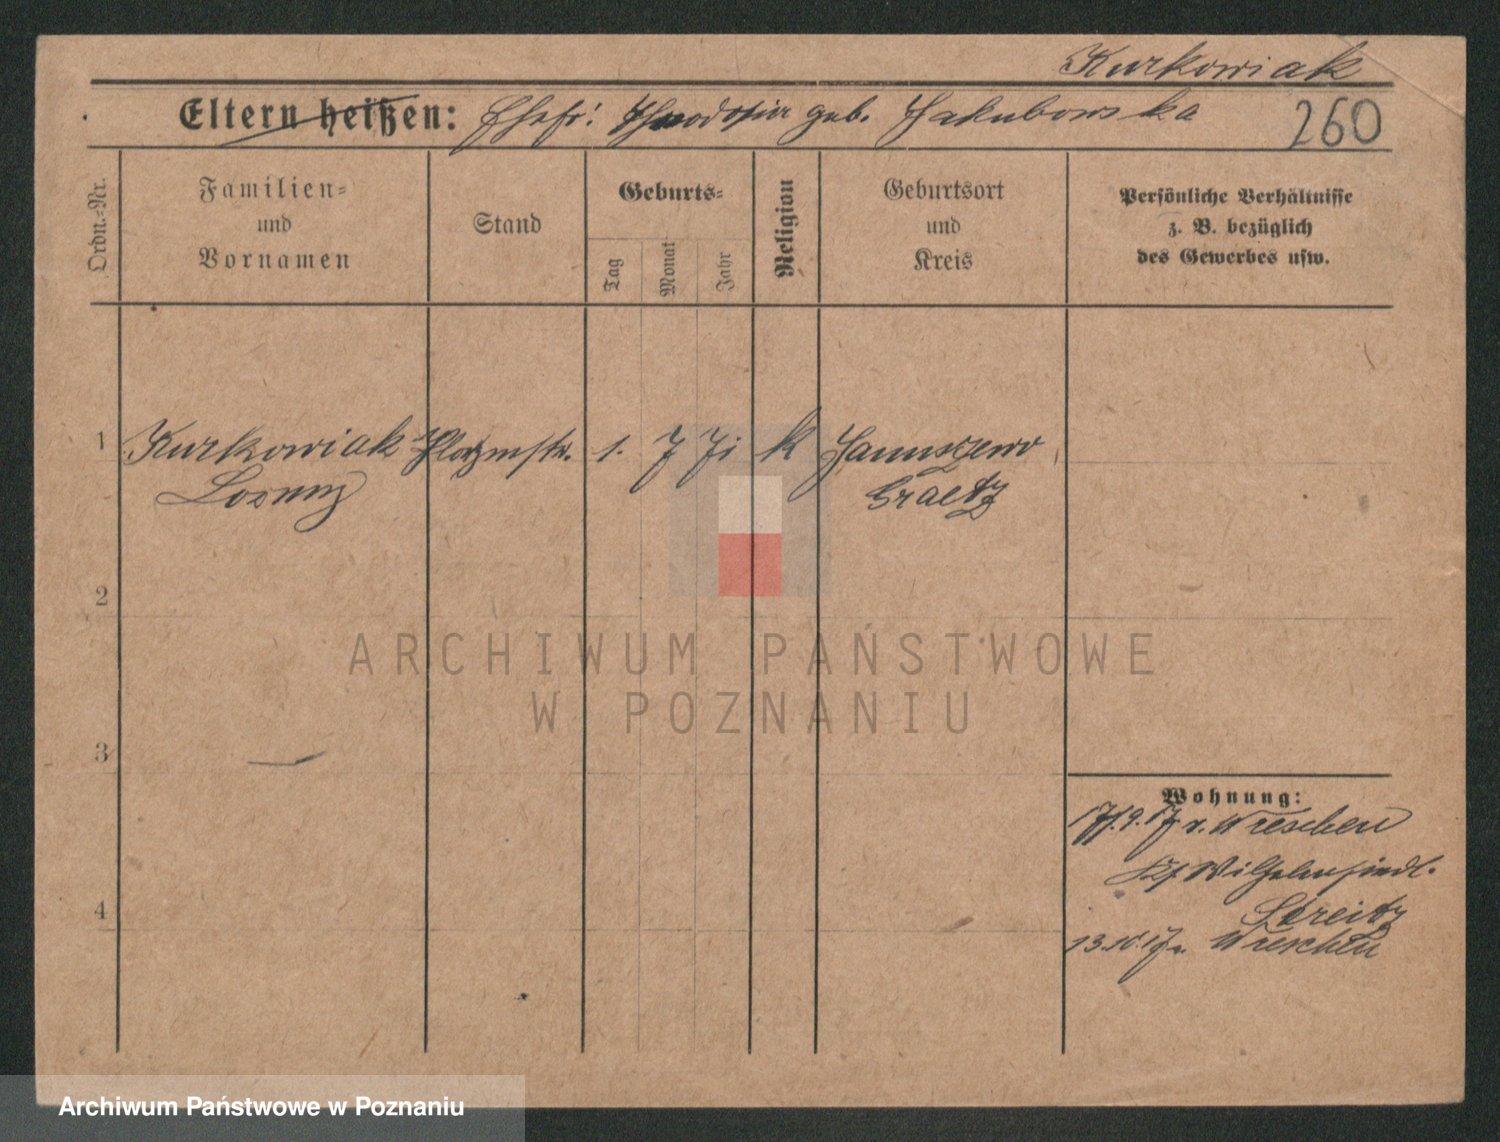 Kurkowiak
Eltern heißen: Ehefr: Theodosia geb. Jakubowska
260
Ordn.-Nr.
Familien-
und
Vornamen
Stand
Geburts-
Tag
Monat
Jahr
Religion
Geburtsort
und
Kreis
Persönliche Verhältnisse
z. B. bezüglich
des Gewerbes usw.
1 Kurkowiak 1. 7 71 k Januszewo
Graetz
2
3
4
Wohnung:
17.9.17 v. Wreschen
Wilhelm
Streitz
13.10.17 n. Wreschen
ARCHIWUM PAŃSTWOWE
W POZNANIU
Archiwum Państwowe w Poznaniu